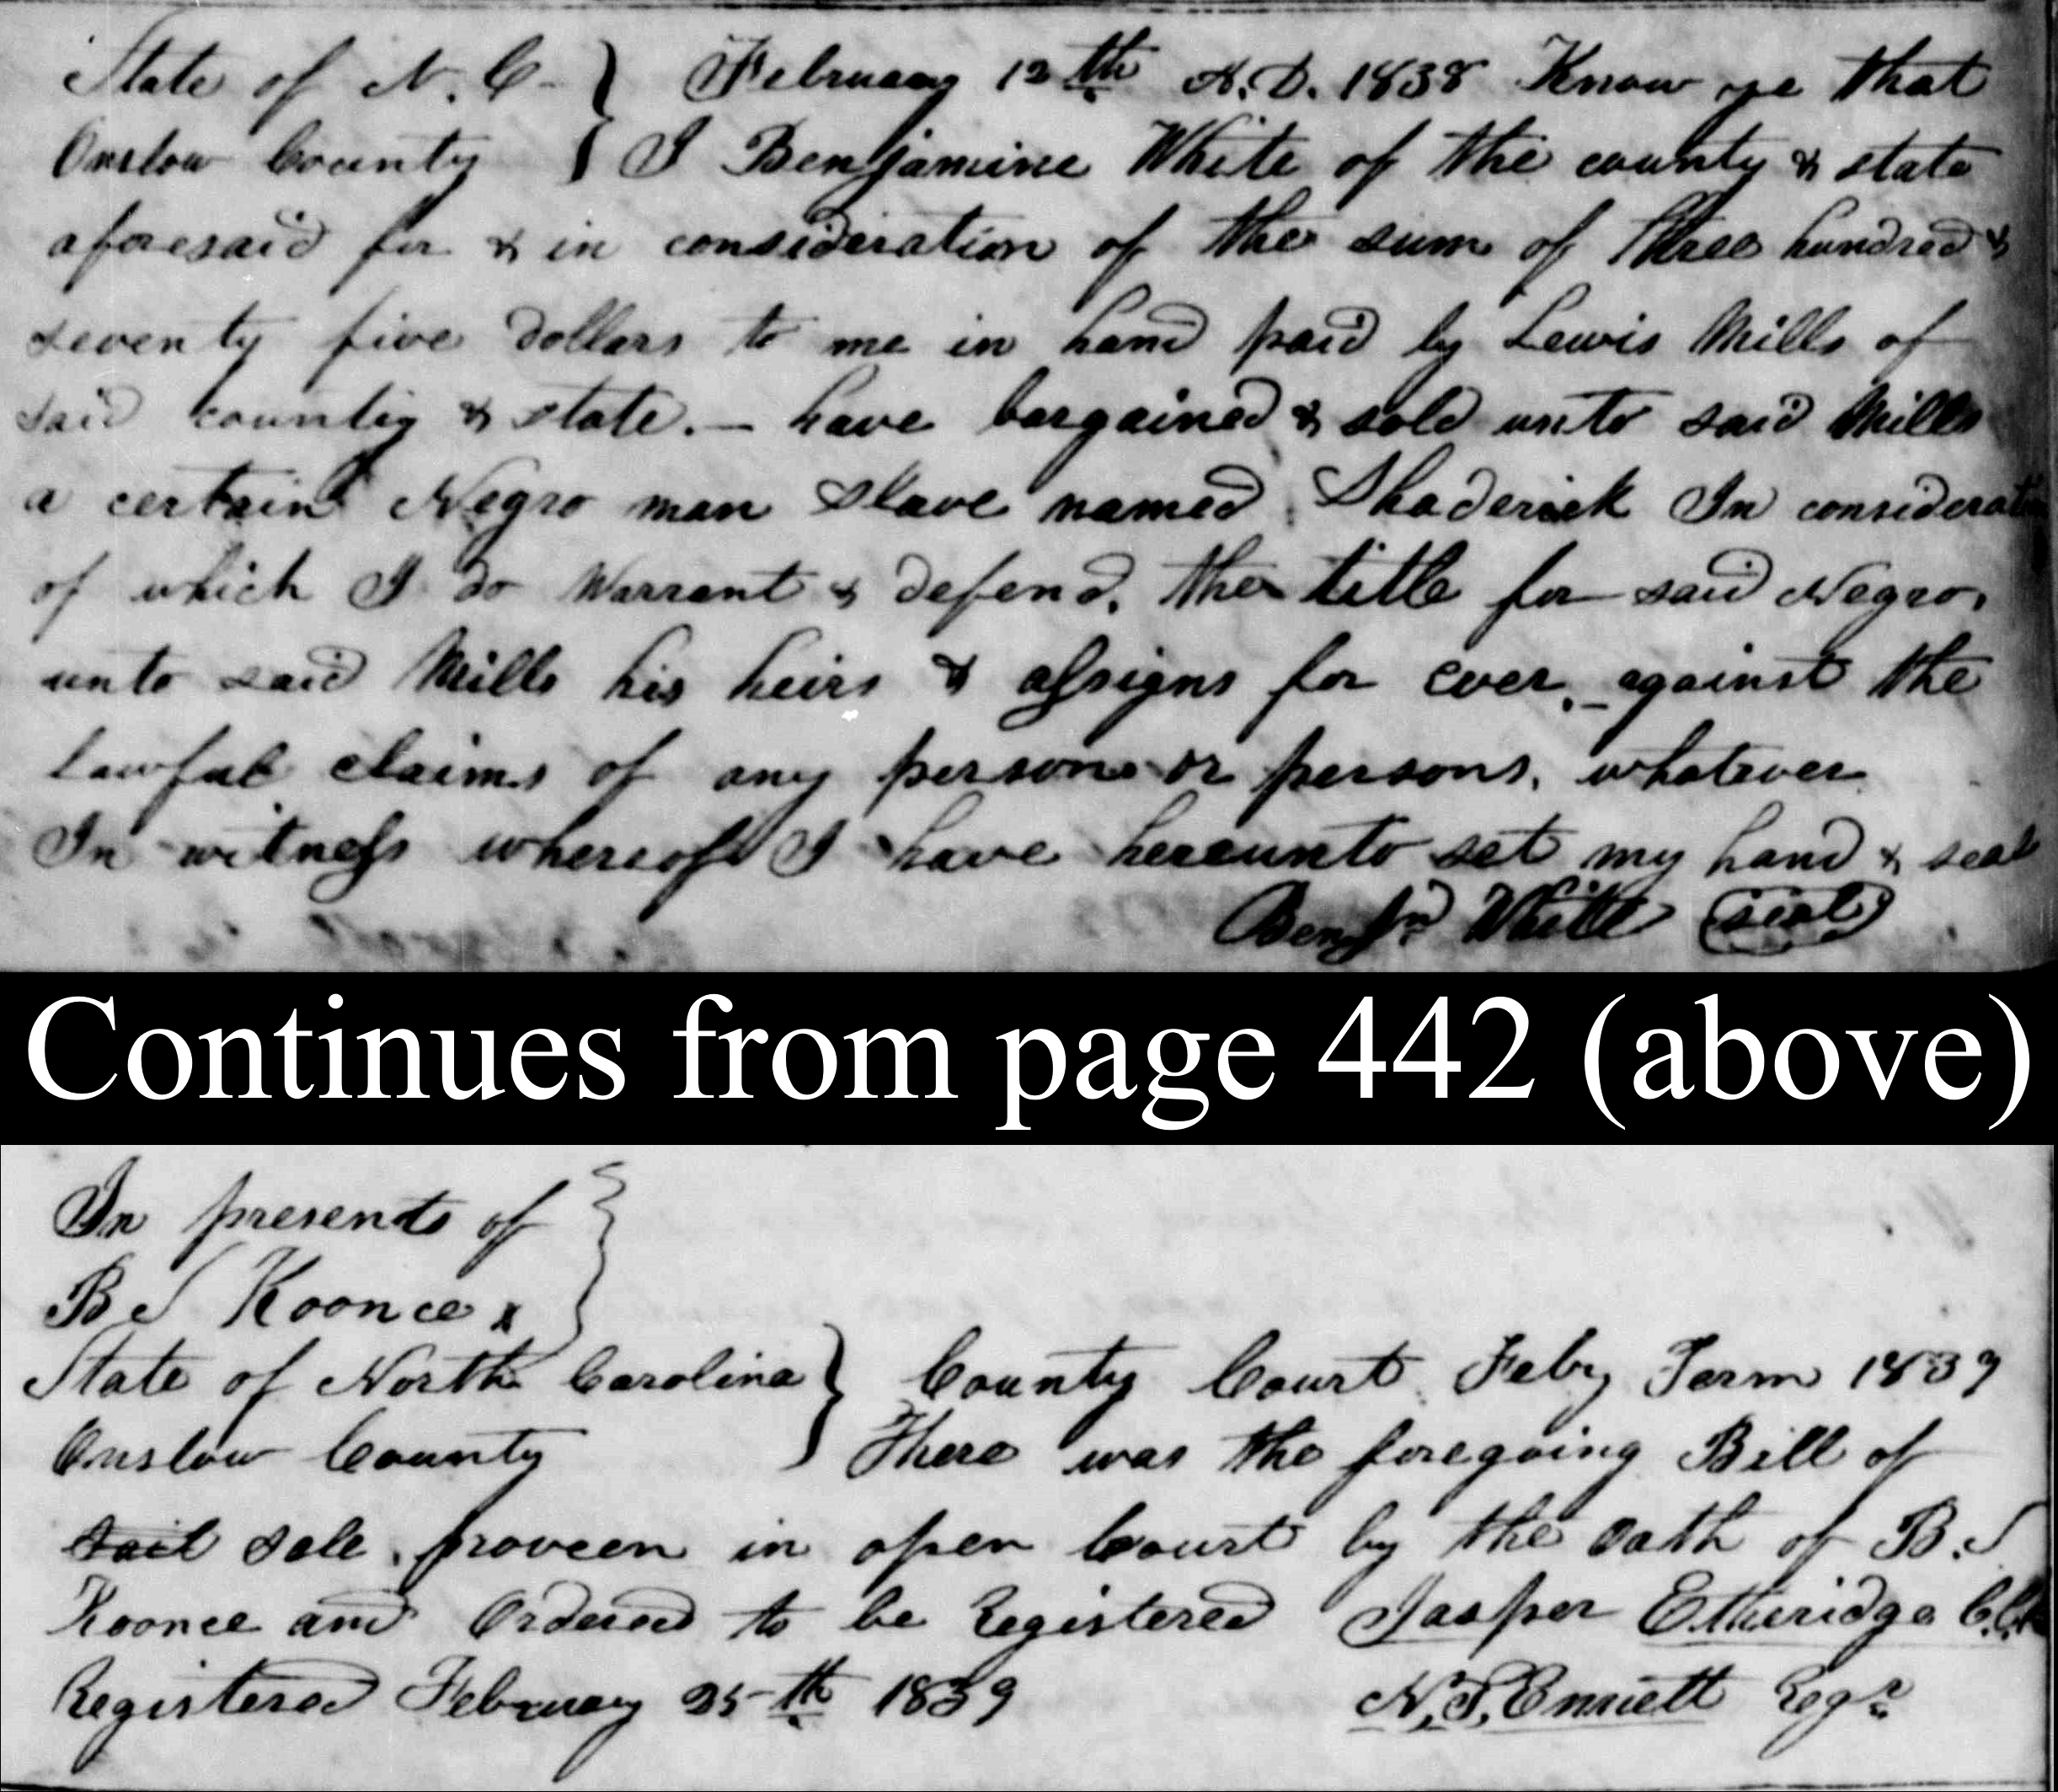 State of N. C. } February 12th A.D. 1838 Know ye that
Onslow County } I Benjamine White of the county & state
aforesaid for & in consideration of the sum of three hundred &
seventy five dollars to me in hand paid by Lewis Mills of
said county & state. – have bargained & sold unto said Mills
a certain Negro man slave named Shaderick In consideration
of which I do Warrant & defend. the title for said Negro,
unto said Mills his heirs & assigns for ever, – against the
lawful claims of any person or persons, whatever
In witness whereof I have hereunto set my hand & seal
Benjn White (seal)
Continues from page 442 (above)
In presents of }
B S Koonce, }
State of North Carolina } County Court Feby Term 1839
Onslow County } There was the foregoing Bill of
sail sale, proveen in open Court by the oath of B. S
Koonce and Ordered to be Registered Jasper Etheridge Clk
Registered February 25th 1839 N. T. Ennett Regr